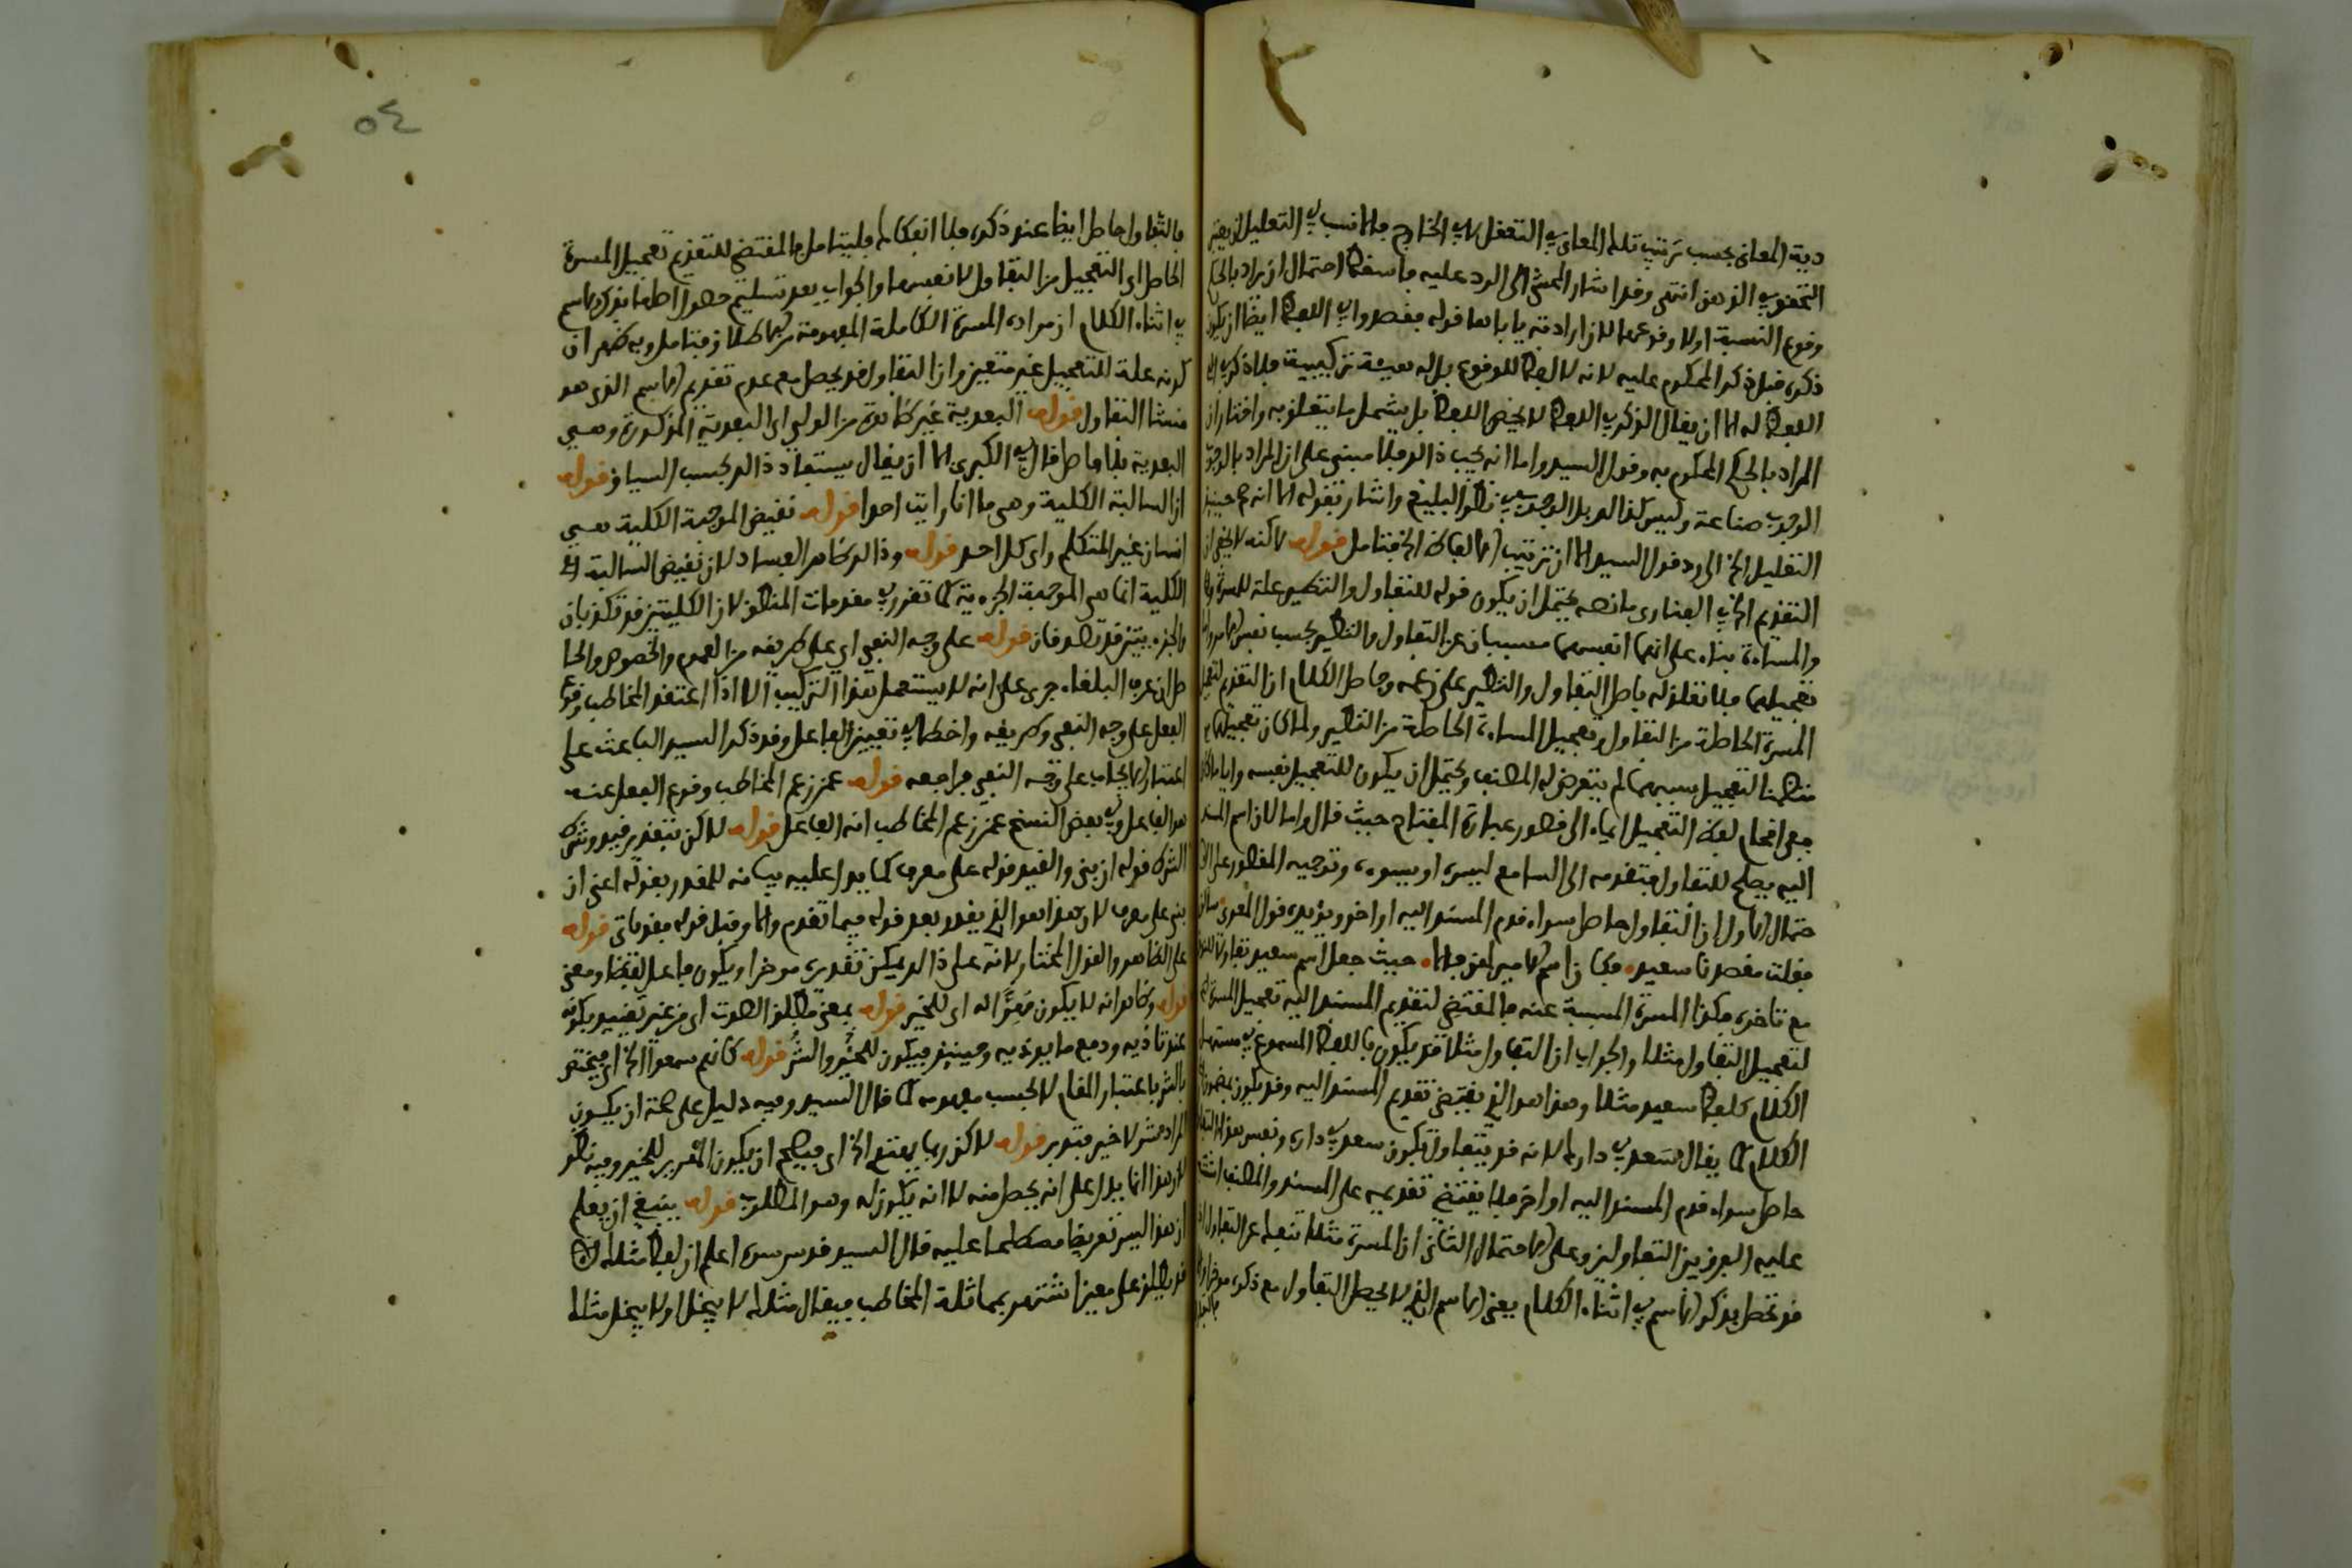 دية المعاني بحسب ترتيب تلك المعاني في التعقل لا في الخارج فالانسب في التعليل ان يعتبر
التحقق في الذهن انتهى وقد اشار المحشي الى الرد عليه ما سقط احتمال ان يراد بالحكم
وقوع النسبة اولا وقوعها لان ارادته يا باها قوله فقصدوا في اللفظ ايضا ان يكون
ذكره قبل ذكر المحكوم عليه لانه لا لفظ للوقوع بل له هيئة تركيبية فلا ذكر في
اللفظ له الا ان يقال الذكر في اللفظ لا يخص اللفظ بل يشمل ما يتعلق به واختار ان
المراد بالحكم المحكوم به وقول السيد واما انه يجب ذلك فلا مبني على ان المراد بالوجوب
الوجوب صناعة وليس كذلك بل الوجوب في نظر البليغ واشار بقوله الا انه ح حينئذ
التعليل الخ الى رد قول السيد الا ان ترتيب الالفاظ الخ فتامل قوله لاكنه لا يخفى ان
التقديم الخ في الفناري ما نصه يحتمل ان يكون قوله للتفاول والتطير علة للمسرة
والمساءة بناء على انهما انفسهما مسببان عن التفاول والتطير بحسب نفس الامر
تعجيلهما فلا تعلق له باصل التفاول والتطير على زعمه وحاصل الكلام ان التقديم لتعجيل
المسرة الحاصلة من التفاول وتعجيل المساءة الحاصلة من التطير ولما كان تعجيلهما
متضمنا لتعجيل سببهما لم يتعرض له المصنف ويحتمل ان يكون للتعجيل نفسه وايا ما كان
ففي اقحام لفظ التعجيل ايماء الى قصور عبارة المفتاح حيث قال واما لان اسم المسند
اليه يصلح للتفاول فتقدمه الى السامع ليسره او يسوءه وتوجيه القصور على الا
حتمال الاول ان التفاول حاصل سواء قدم المسند اليه او اخر ويؤيده قول المعري سالن
فقلت مقصدنا سعيد، فكان اسم الامير لهن فالا، حيث جعل اسم سعيد تفاولا
مع تاخره فكذا المسرة المسببة عنه فالمقتضي لتقديم المسند اليه تعجيل المسرة لا
لتعجيل التفاول مثلا والجواب ان التفاول مثلا قد يكون باللفظ المسموع في مستهل
الكلام كلفظ سعيد مثلا وهذا هو الذي يقتضي تقديم المسند اليه وقد يكون بمضمون
الكلام كما يقال سعد في دارك لانه قد يتفاول بكون سعد في داره ونفس هذا التفاول
حاصل سواء قدم المسند اليه او اخر فلا يقتضي تقديمه على المسند والمصنف اشتبه
عليه الفرق بين التفاولين وعلى الاحتمال الثاني ان المسرة مثلا تنفك عن التفاول
قد تحصل بذكر الاسم في اثناء الكلام يعني الاسم الذي لا يحصل التفاول مع ذكره موخرا
فالتفا
٥٤
فالتفاول حاصل ايضا عند ذكره فلا انفكاك فليتامل فالمقتضي للتقديم تعجيل المسرة
الحاصل اي التعجيل من التفاول لا نفسها والجواب بعد تسليم حصول اصلها بذكر الاسم
في اثناء الكلام ان مراده المسرة الكاملة المفهومة من الاطلاق فتامل وبه ظهر ان
كونه علة للتعجيل غير متعين وان التفاول قد يحصل مع عدم تقديم الاسم الذي هو
منشا التفاول قوله البعدية غير ظاهرة من الدليل اي البعدية المذكورة وهي
البعدية بلا فاصل قال في الكبرى الا ان يقال يستفاد ذلك بحسب السياق قوله
ان السالبة الكلية وهي ما انا رايت احدا قوله نقيض الموجبة الكلية هي
انسان غير المتكلم راى كل احد قوله وذلك ظاهر الفساد لان نقيض السالبة
الكلية انما هي الموجبة الجزءية كما تقرر في مقدمات المنطق لان الكليتين قد تكذبان
والجزءيتين قد تصدقان قوله على وجه النفي اي على طريقه من العموم والخصوص والحا
صل ان عرف البلغاء جرى على انه لا يستعمل هذا التركيب الا اذا اعتقد المخاطب وقوع
الفعل على وجه النفي وطريقه واخطا في تعيين الفاعل وقد ذكر السيد الباعث على
اعتبار الايجاب على وجه النفي فراجعه قوله عمن زعم المخاطب وقوع الفعل عنه
هو الفاعل وفي بعض النسخ عمن زعم المخاطب انه الفاعل قوله لاكن بتقدير قيد وشرط
الشرط قوله ان بنى والقيد قوله على معرف كما يدل عليه بيانه للمقدر بقوله اعني ان
بنى على معرف لان هذا هو الذي يقدر بعد قوله فيما تقدم والا وقبل قوله فقد ياتي قوله
على الظاهر والقول المختار لانه على ذلك يمكن تقديره موخرا ويكون فاعلا لفظا ومعنى
قوله وظاهر انه لا يكون مُهِرًّا له اي للخير قوله بمعنى مطلق الصوت اي من غير تقييد بكونه
عند تاذيه ودفع ما يوذيه وحينئذ فيكون للخير والشر قوله كانهم سمعوا الخ اي فيختص
بالشر باعتبار المقام لا بحسب مفهومه كما قال السيد وفيه دليل على صحة ان يكون
المراد شر لا خير فتدبر قوله لاكن ربما يمتنع الخ اي فيصح ان يكون الهرير للخير وفيه نظر
لان هذا انما يدل على انه يحصل منه لا انه يكون له وهو المطلوب قوله ينبغي ان يعلم
ان هذا ليس تعريضا مصطلحا عليه قال السيد قدس سره اعلم ان لفظ مثلك
قد يطلق على معين اشتهر بمماثلة المخاطب فيقال مثلك لا يبخل اولا يبخل مثلك